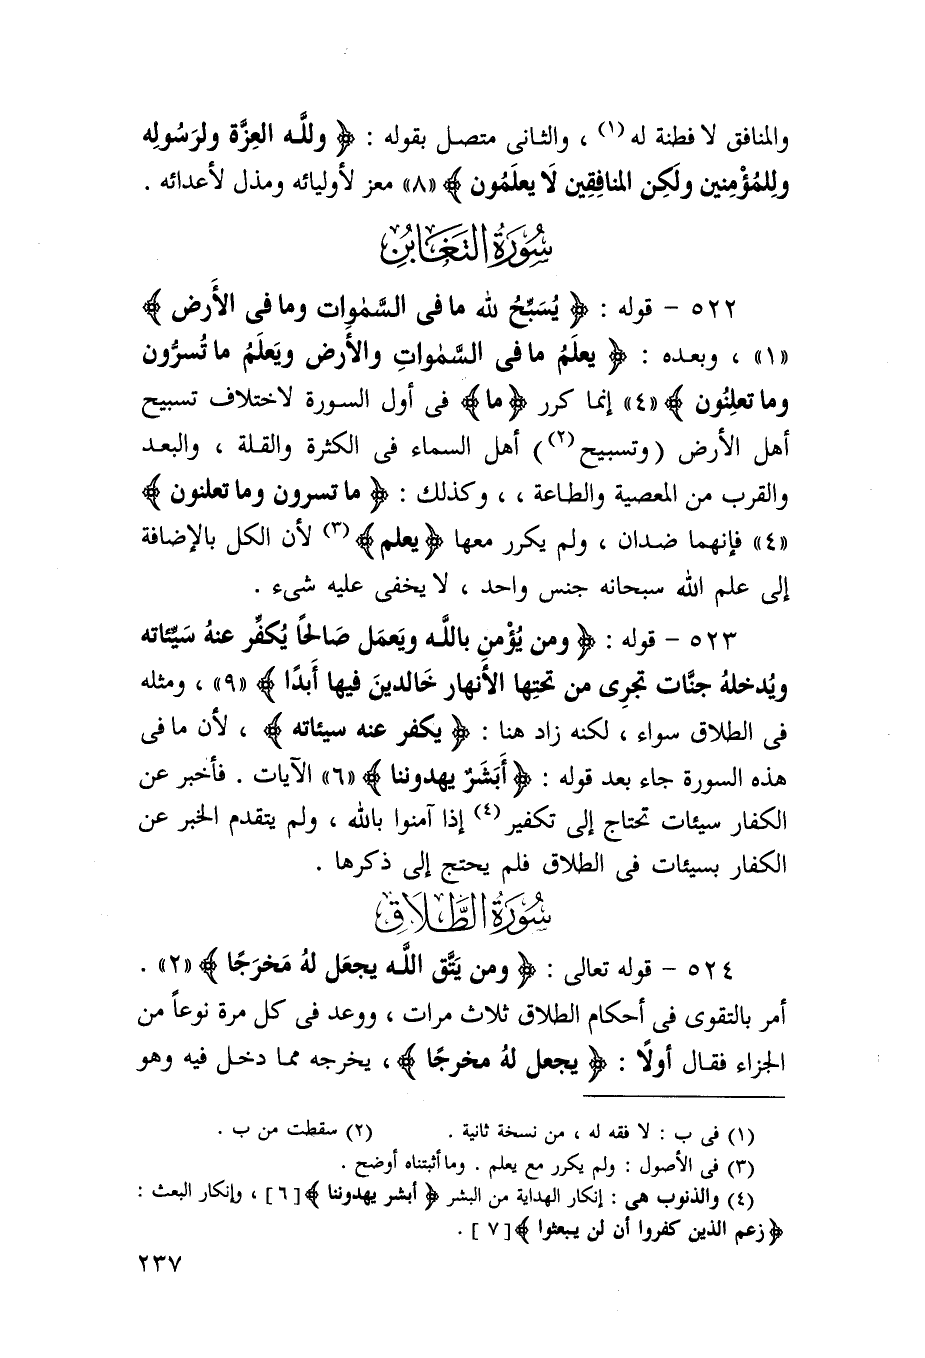 والمنافق لا فطنة له (١) ، والثانى متصل بقوله : ﴿ وللَّه العِزَّة ولرَسُولِه
وللمُؤْمِنين ولَكِن المنافِقِين لَا يعلَمُون ﴾ «٨» معز لأوليائه ومذل لأعدائه .
سُورَةُ التغَابُنِ
٥٢٢ – قوله : ﴿ يُسَبِّحُ لله ما فى السَّمٰوات وما فى الأَرض ﴾
«١» ، وبعده : ﴿ يعلَمُ ما فى السَّمٰواتِ والأَرض ويَعلَمُ ما تُسرُّون
وما تعلِنُون ﴾ «٤» إنما كرر ﴿ما﴾ فى أول السورة لاختلاف تسبيح
أهل الأرض (وتسبيح(٢)) أهل السماء فى الكثرة والقلة ، والبعد
والقرب من المعصية والطاعة ، ، وكذلك : ﴿ ما تسرون وما تعلنون ﴾
«٤» فإنهما ضدان ، ولم يكرر معها ﴿يعلم﴾ (٣) لأن الكل بالإضافة
إلى علم الله سبحانه جنس واحد ، لا يخفى عليه شىء .
٥٢٣ – قوله : ﴿ ومن يُؤْمنِ باللَّه ويَعمَل صَالحًا يُكفِّر عنهُ سَيِّئاته
ويُدخلهُ جنَّات تجرِى من تحتِها الأنهار خَالدينَ فيها أَبدًا ﴾ «٩» ، ومثله
فى الطلاق سواء ، لكنه زاد هنا : ﴿ يكفر عنه سيئاته ﴾ ، لأن ما فى
هذه السورة جاء بعد قوله : ﴿ أَبَشَرٌ يهدوننا ﴾ «٦» الآيات . فأخبر عن
الكفار سيئات تحتاج إلى تكفير (٤) إذا آمنوا بالله ، ولم يتقدم الخبر عن
الكفار بسيئات فى الطلاق فلم يحتج إلى ذكرها .
سُورَةُ الطَّلَاقِ
٥٢٤ – قوله تعالى : ﴿ ومن يَتَّق اللَّه يجعَل لهُ مَخرَجًا ﴾ «٢» .
أمر بالتقوى فى أحكام الطلاق ثلاث مرات ، ووعد فى كل مرة نوعاً من
الجزاء فقال أولًا : ﴿ يجعل لهُ مخرجًا ﴾ ، يخرجه مما دخل فيه وهو
(١) فى ب : لا فقه له ، من نسخة ثانية . (٢) سقطت من ب .
(٣) فى الأصول : ولم يكرر مع يعلم . وما أثبتناه أوضح .
(٤) والذنوب هى : إنكار الهداية من البشر ﴿ أبشر يهدوننا ﴾ [ ٦ ] ، وإنكار البعث :
﴿ زعم الذين كفروا أن لن يبعثوا ﴾ [ ٧ ] .
٢٣٧